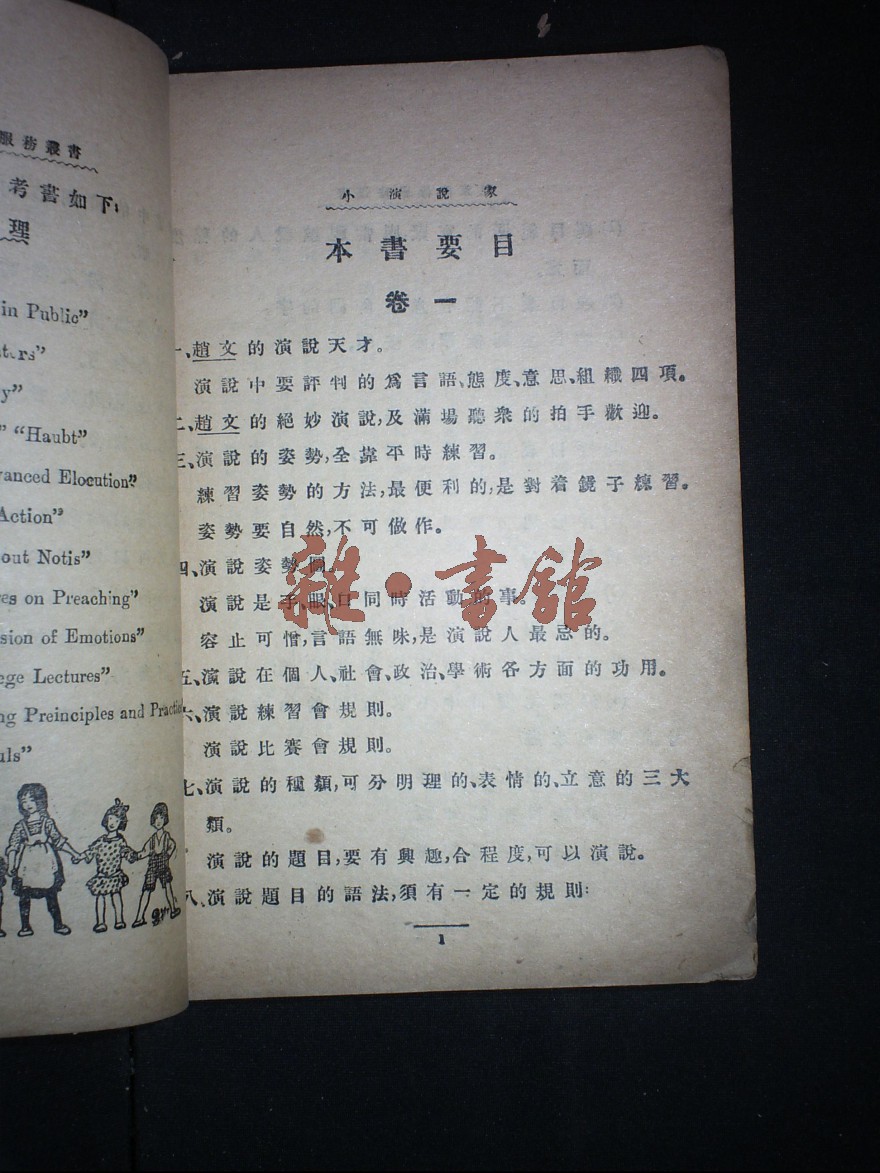 服務叢書
考書如下：
理
in Public”
y”
” “Haubt”
vanced Elocution”
Action”
out Notis”
res on Preaching”
sion of Emotions”
ege Lectures”
ng Preinciples and Practi
uls”
小演說家
本書要目
卷一
一、趙文的演說天才。
演說中要評判的爲言語、態度、意思、組織四項。
二、趙文的絕妙演說，及滿場聽衆的拍手歡迎。
三、演說的姿勢，全靠平時練習。
練習姿勢的方法，最便利的，是對着鏡子練習。
姿勢要自然，不可做作。
四、演說姿勢圖。
演說是手、眼、口同時活動的事。
容止可憎，言語無味，是演說人最忌的。
五、演說在個人、社會、政治、學術各方面的功用。
六、演說練習會規則。
演說比賽會規則。
七、演說的種類，可分明理的、表情的、立意的三大
類。
演說的題目，要有興趣，合程度，可以演說。
八、演說題目的語法，須有一定的規則：
1
雜·書館